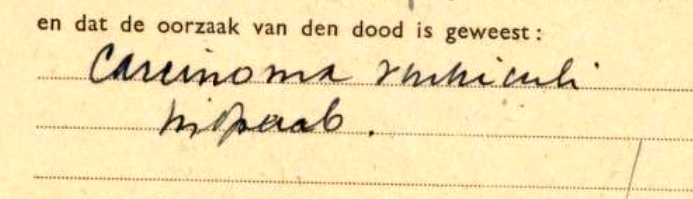 en dat de oorzaak van den dood is geweest:
Carcinoma ventriculi
inoperab.